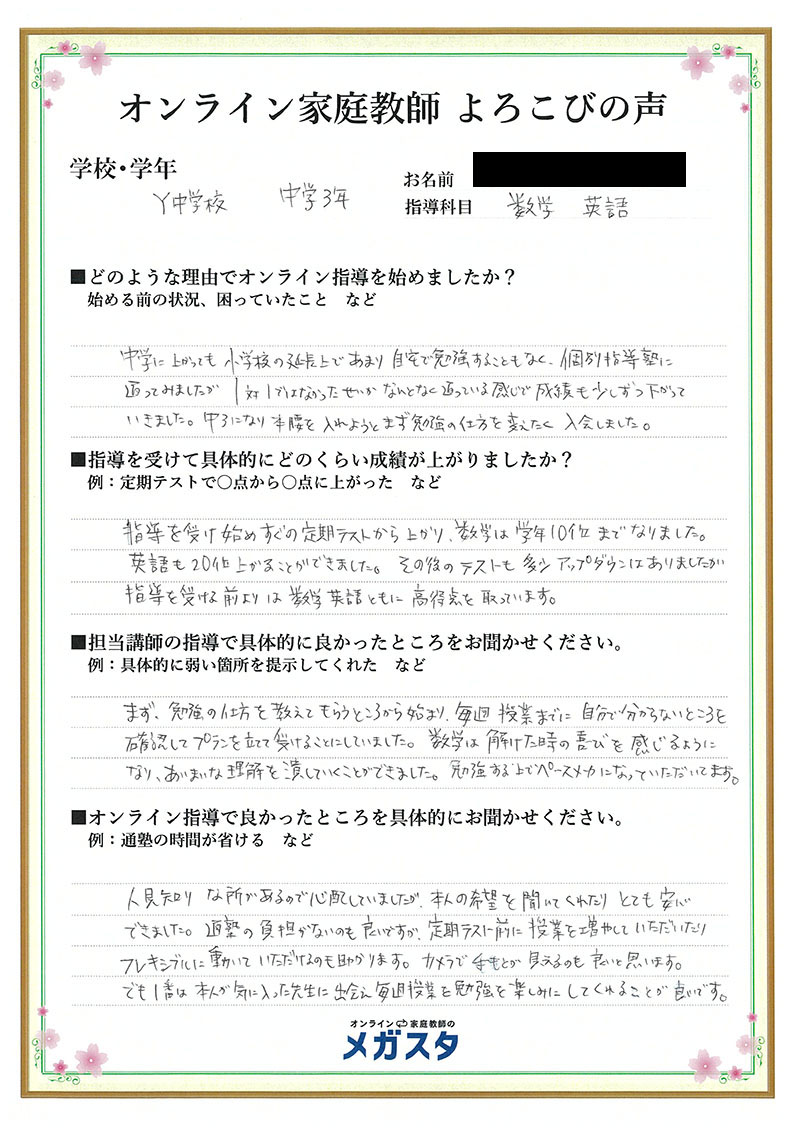 オンライン家庭教師 よろこびの声
学校・学年
お名前
Y中学校 中学3年
指導科目 数学 英語
■どのような理由でオンライン指導を始めましたか？
始める前の状況、困っていたこと など
中学に上がっても 小学校の延長上であまり 自宅で勉強することもなく、個別指導塾に
通ってみましたが 1対1ではなかったせいか なんとなく通っている感じで 成績も少しずつ下がって
いきました。中3になり 本腰を入れようとまず勉強の仕方を変えたく 入会しました。
■指導を受けて具体的にどのくらい成績が上がりましたか？
例：定期テストで〇点から〇点に上がった など
指導を受け始めすぐの定期テストから上がり、数学は 学年10位 までなりました。
英語も20位上がることができました。その後のテストも 多少アップダウンはありましたが
指導を受ける前よりは 数学英語ともに 高得点を取っています。
■担当講師の指導で具体的に良かったところをお聞かせください。
例：具体的に弱い箇所を提示してくれた など
まず、勉強の仕方を教えてもらうところから始まり、毎週 授業までに 自分で分からないところを
確認してプランを立て受けることにしていました。数学は 解けた時の喜びを 感じるように
なり、あいまいな理解を潰していくことができました。勉強する上でペースメカになっていただいてます。
■オンライン指導で良かったところを具体的にお聞かせください。
例：通塾の時間が省ける など
人見知り な所があるので心配していましたが、本人の希望を聞いてくれたり とても 安心
できました。通塾の負担がないのも良いですが、定期テスト前に 授業を増やしていただいたり
フレキシブルに動いていただけるのも助かります。カメラで手もとが見えるのも 良いと思います。
でも1番は 本人が気に入った先生に出会え 毎週授業を勉強を楽しみにしてくれることが良いです。
オンライン家庭教師の
メガスタ